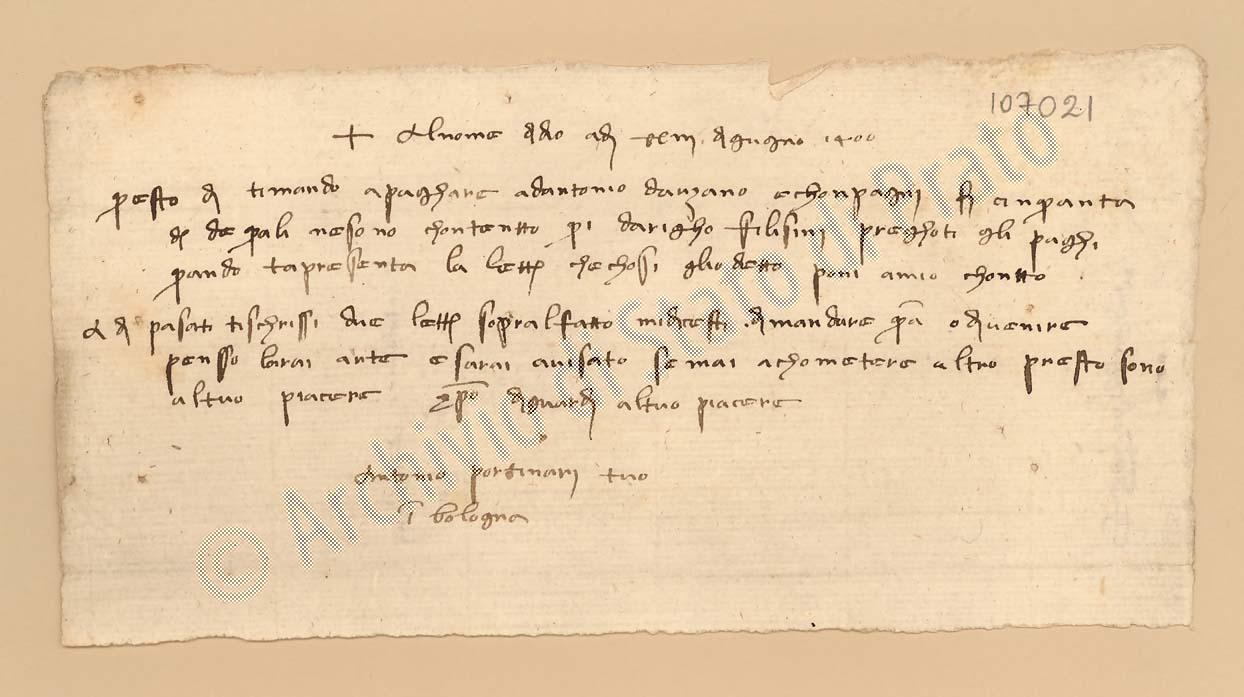 107021
+ Al nome di dio adi xxiii di gugno 1400
questo di ti mando a paghare ad antonio da uzano e chonpagni f cinquanta
de quali ne sono chontento qui d arigho filisini preghoti gli paghi
quando ta presenta la lett che chossi gli o detto poni a mio chonto
A di pasati ti schrissi due lett sopra l fatto mi dicesti di mandare qua o di venire
pensso l arai aute e sarai avisato se mai a chometere altro presto sono
al tuo piacere xpo di guardi al tuo piacere
Antonio portinari tuo
i bologna
© Archivio di Stato di Prato